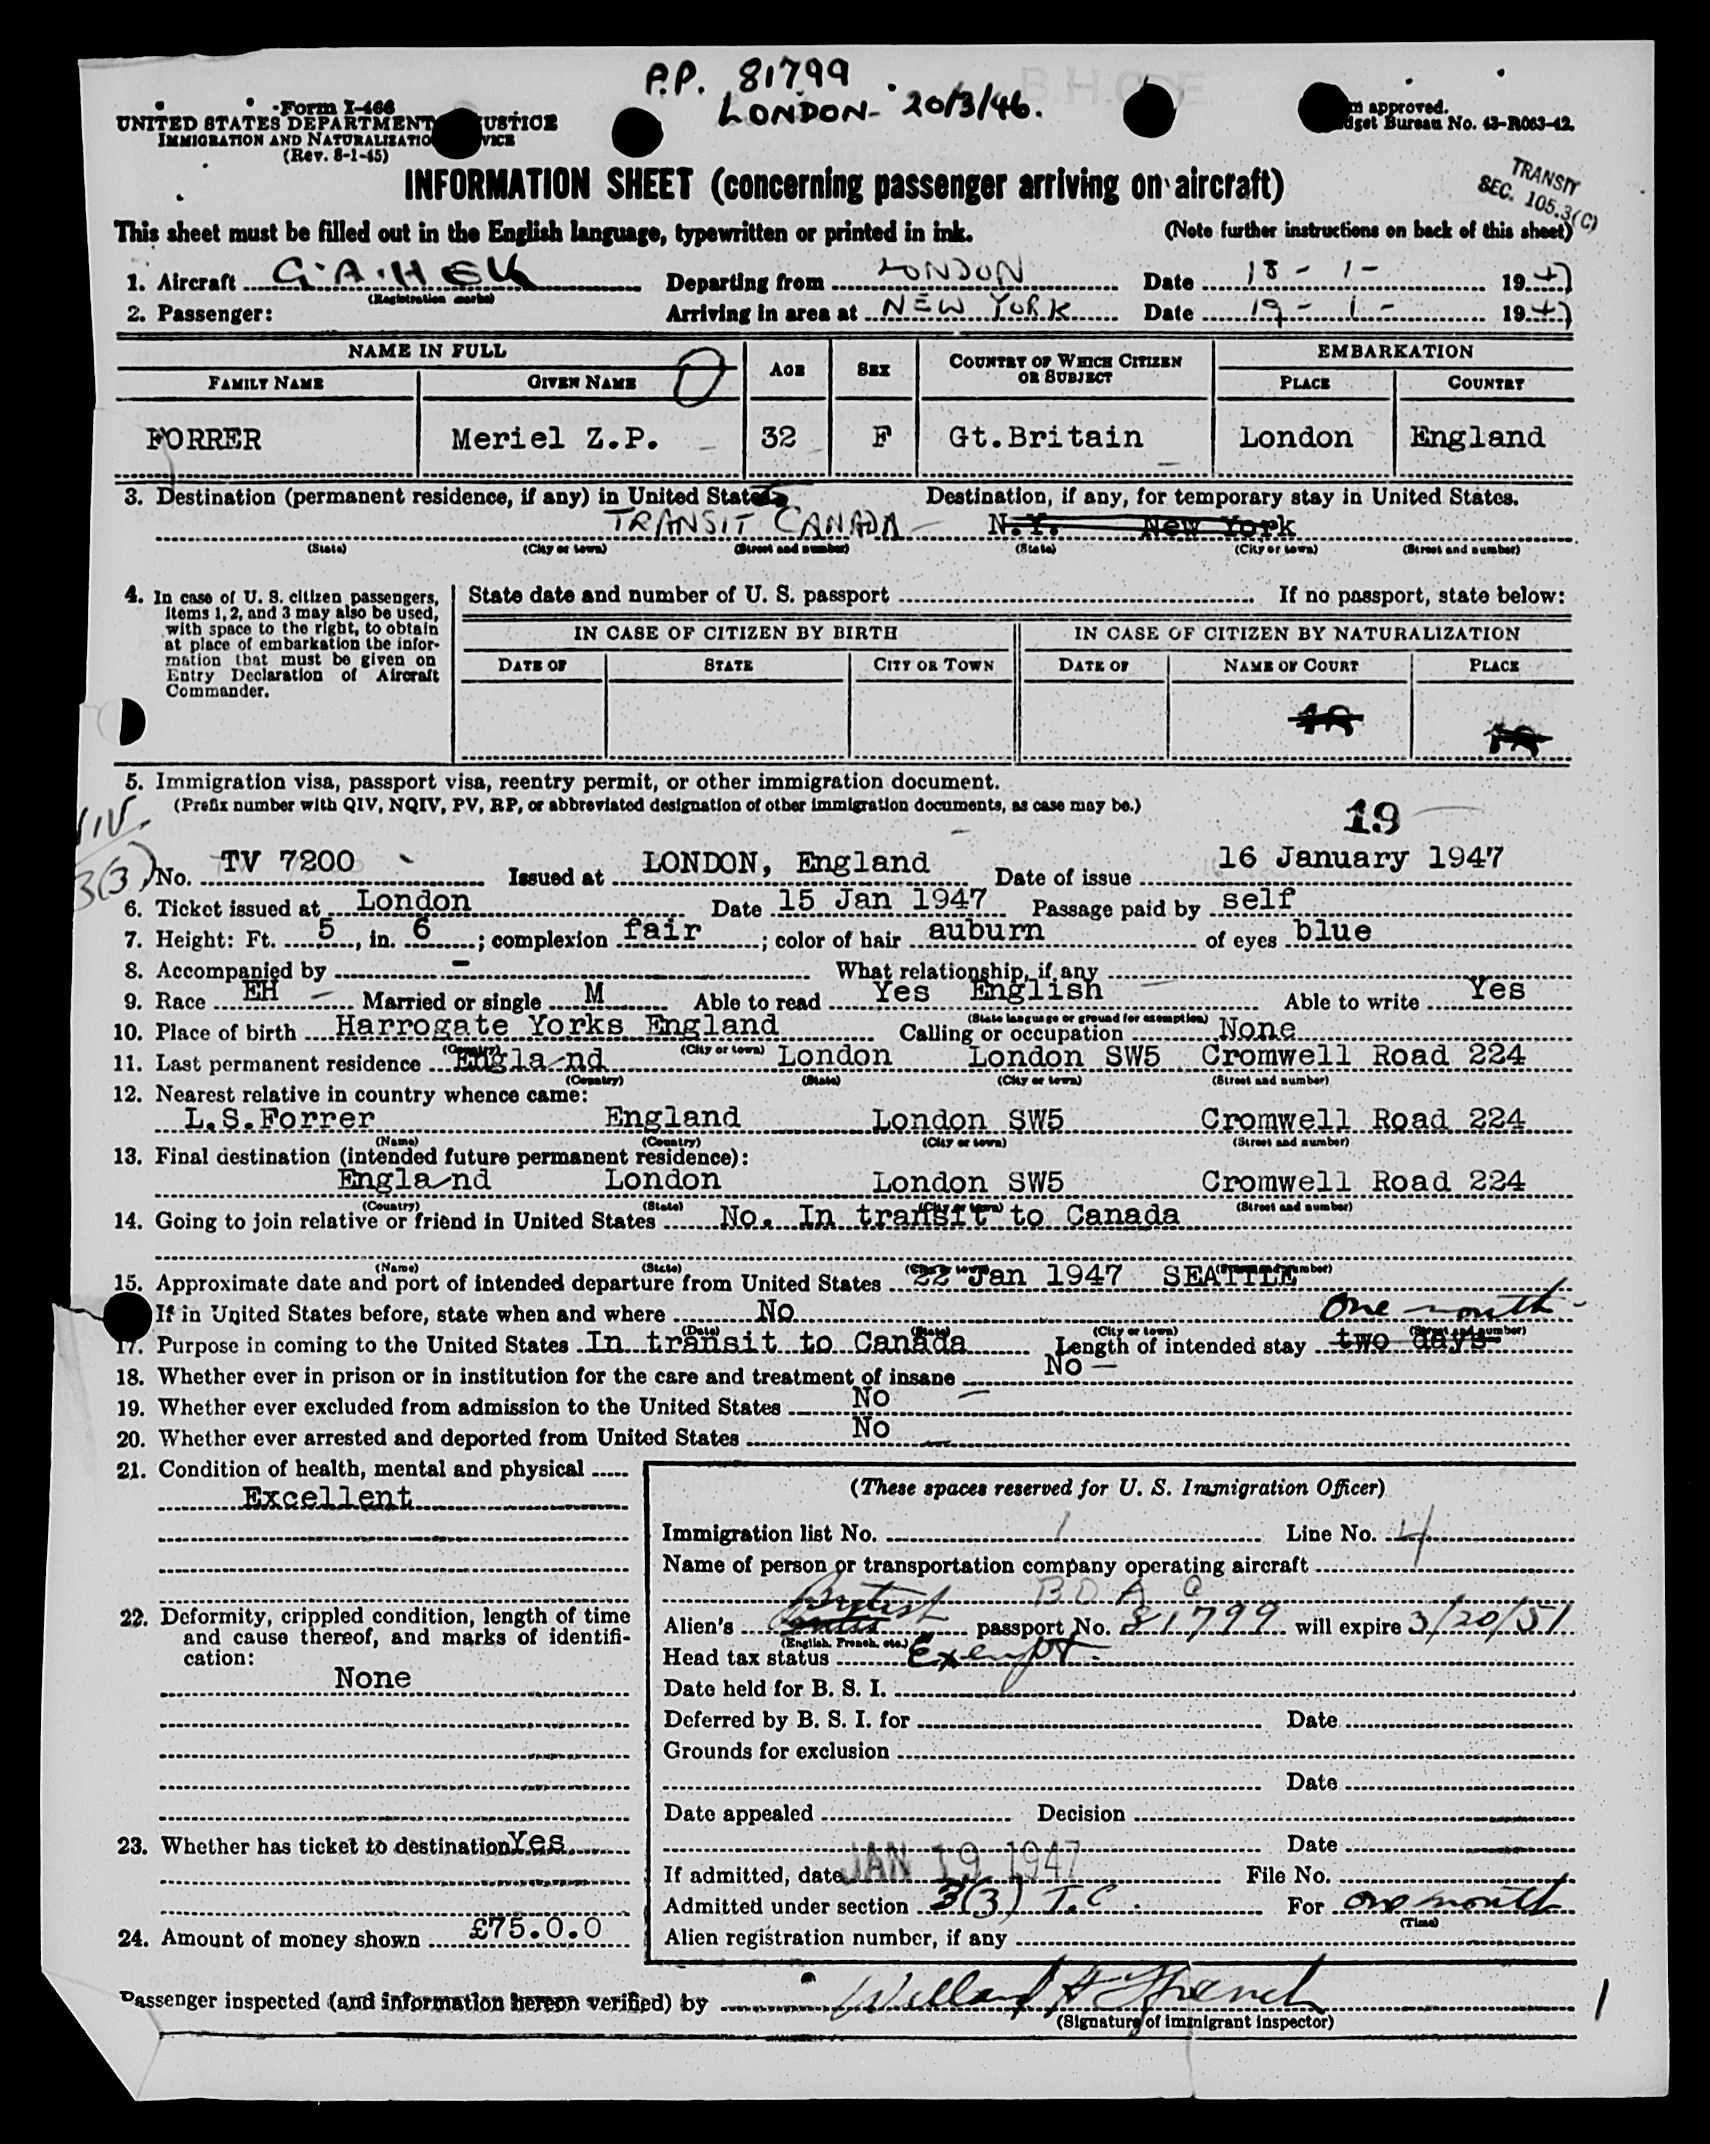 P.P. 81799
LONDON - 20/3/46.
Form I-466
UNITED STATES DEPARTMENT USTICE
IMMIGRATION AND NATURALIZATIO VICE
(Rev. 8-1-45)
m approved.
dget Bureau No. 43-R063-42.
INFORMATION SHEET (concerning passenger arriving on aircraft)
TRANSIT
SEC. 105.3(C)
This sheet must be filled out in the English language, typewritten or printed in ink. (Note further instructions on back of this sheet)
1. Aircraft G.A.H.E.K Departing from LONDON Date 18 - 1 - 1947
(Registration marks)
2. Passenger: Arriving in area at NEW YORK Date 19 - 1 - 1947
NAME IN FULL AGE SEX COUNTRY OF WHICH CITIZEN OR SUBJECT EMBARKATION
FAMILY NAME GIVEN NAME PLACE COUNTRY
FORRER Meriel Z.P. 32 F Gt.Britain London England
3. Destination (permanent residence, if any) in United States Destination, if any, for temporary stay in United States.
TRANSIT CANADA - N.Y. New York
(State) (City or town) (Street and number) (State) (City or town) (Street and number)
4. In case of U. S. citizen passengers, items 1, 2, and 3 may also be used, with space to the right, to obtain at place of embarkation the information that must be given on Entry Declaration of Aircraft Commander.
State date and number of U. S. passport If no passport, state below:
IN CASE OF CITIZEN BY BIRTH IN CASE OF CITIZEN BY NATURALIZATION
DATE OF STATE CITY OR TOWN DATE OF NAME OF COURT PLACE
5. Immigration visa, passport visa, reentry permit, or other immigration document.
(Prefix number with QIV, NQIV, PV, RP, or abbreviated designation of other immigration documents, as case may be.)
19
3(3)
No. TV 7200 Issued at LONDON, England Date of issue 16 January 1947
6. Ticket issued at London Date 15 Jan 1947 Passage paid by self
7. Height: Ft. 5, in. 6; complexion fair; color of hair auburn of eyes blue
8. Accompanied by - What relationship, if any
9. Race EH Married or single M Able to read Yes English Able to write Yes
(State language or ground for exemption)
10. Place of birth Harrogate Yorks England Calling or occupation None
(Country) (City or town)
11. Last permanent residence England London London SW5 Cromwell Road 224
(Country) (State) (City or town) (Street and number)
12. Nearest relative in country whence came:
L.S.Forrer England London SW5 Cromwell Road 224
(Name) (Country) (City or town) (Street and number)
13. Final destination (intended future permanent residence):
England London London SW5 Cromwell Road 224
(Country) (State) (City or town) (Street and number)
14. Going to join relative or friend in United States No. In transit to Canada
(Name) (State) (City or town) (Street and number)
15. Approximate date and port of intended departure from United States 22 Jan 1947 SEATTLE
If in United States before, state when and where No
(Date) (State) (City or town) (Street and number)
One month -
17. Purpose in coming to the United States In transit to Canada Length of intended stay two days
18. Whether ever in prison or in institution for the care and treatment of insane No
19. Whether ever excluded from admission to the United States No
20. Whether ever arrested and deported from United States No
21. Condition of health, mental and physical
Excellent
22. Deformity, crippled condition, length of time and cause thereof, and marks of identification:
None
23. Whether has ticket to destination Yes
24. Amount of money shown £75.0.0
(These spaces reserved for U. S. Immigration Officer)
Immigration list No. 1 Line No. 4
Name of person or transportation company operating aircraft
B O A C
Alien's British passport No. 81799 will expire 3/20/51
(English, French, etc.)
Head tax status Exempt.
Date held for B. S. I.
Deferred by B. S. I. for Date
Grounds for exclusion
Date
Date appealed Decision
Date
If admitted, date JAN 19 1947 File No.
Admitted under section 3(3) T.C. For one month
(Time)
Alien registration number, if any
Passenger inspected (and information hereon verified) by Willard H French
(Signature of immigrant inspector)
1